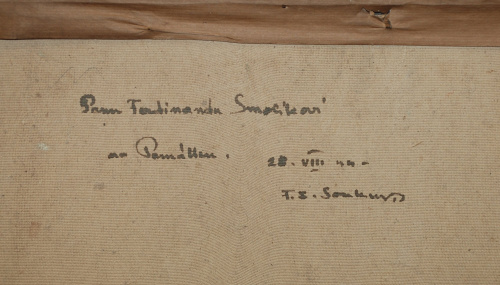 Panu Ferdinandu Smolíkovi
na Památku.
28. VIII 44 -
F. S.